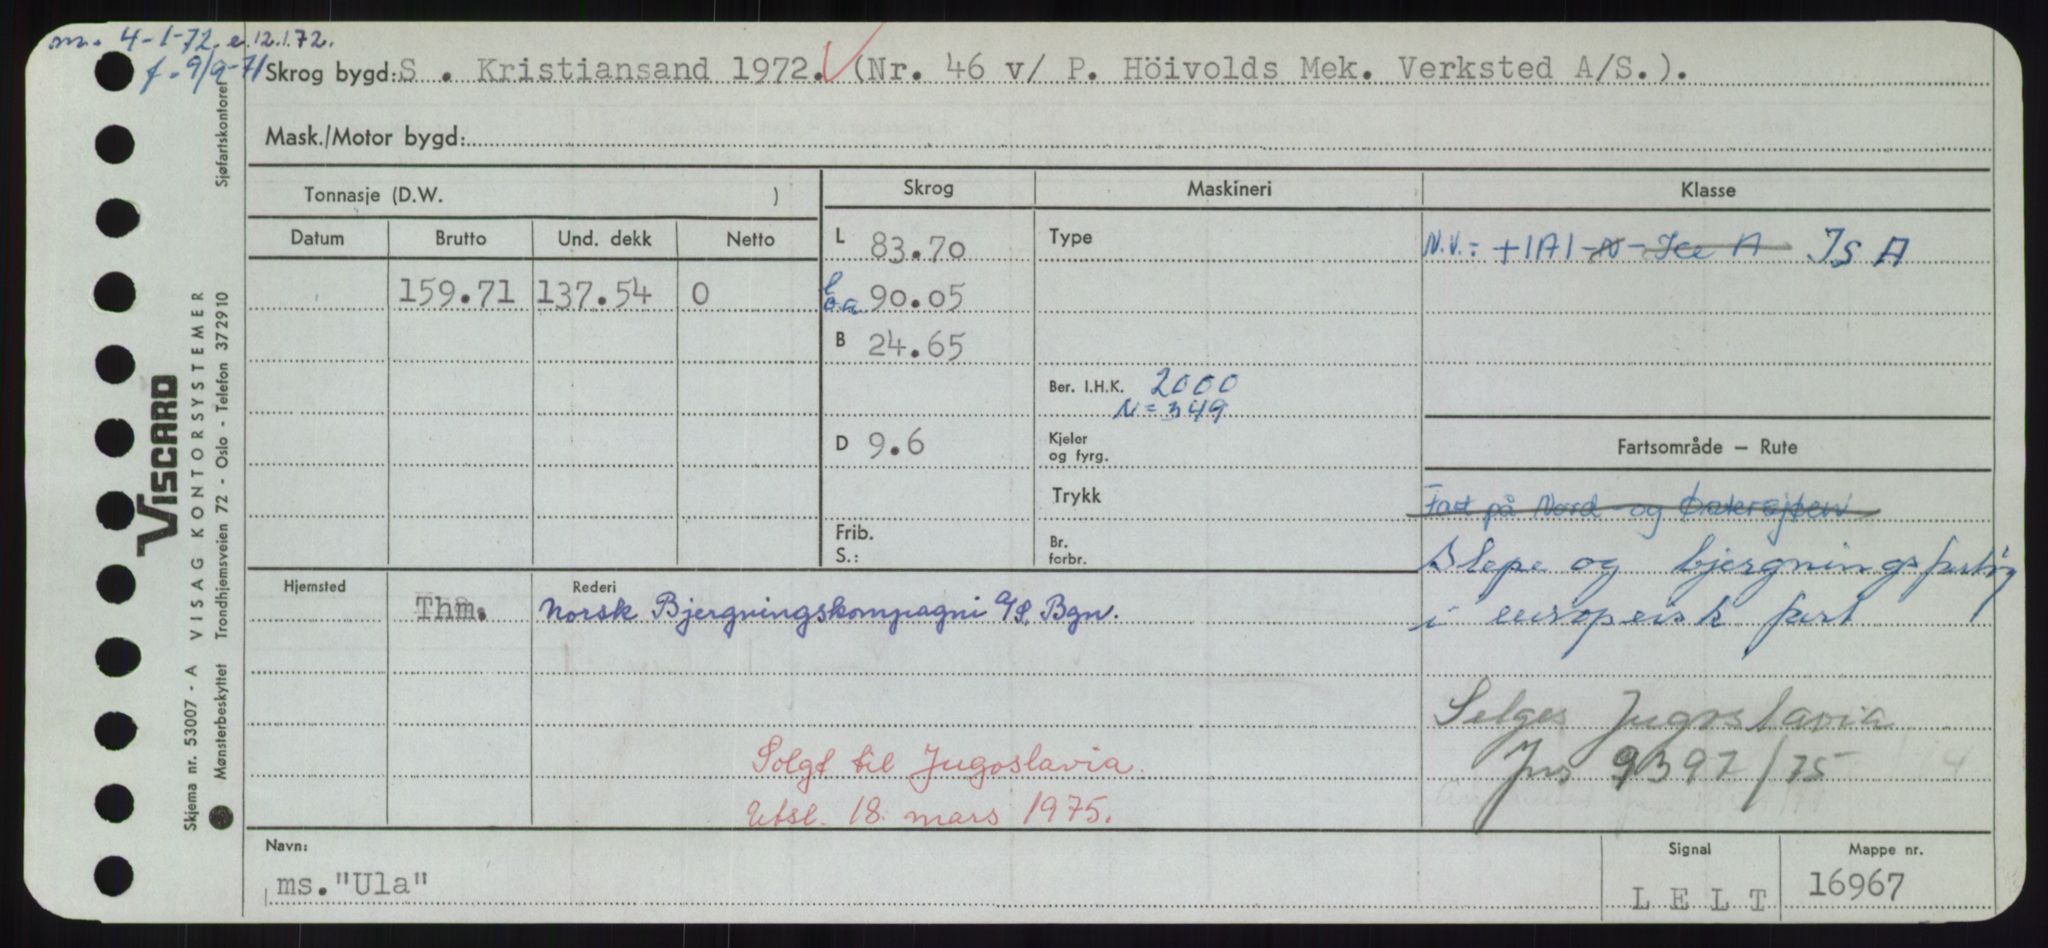 m. 4-1-72. e. 12.1.72.
f. 9/9-71
Skrog bygd: S . Kristiansand 1972. (Nr. 46 v/ P. Höivolds Mek. Verksted A/S.).
Mask./Motor bygd:
Tonnasje (D.W. )
Skrog
Maskineri
Klasse
Datum
Brutto
Und. dekk
Netto
159.71 137.54 0
L 83.70
l o.a 90.05
B 24.65
D 9.6
Frib.
S.:
Type
Ber. I.H.K. 2000
N = 349
Kjeler
og fyrg.
Trykk
Br.
forbr.
N.V.: +1A1-N-Ice A IS A
Fartsområde – Rute
Fart på Nord- og Østersjøen
Slepe og bjergningsfartøy
i europeisk fart
Selges Jugoslavia
Jns 9397/75
Hjemsted
Rederi
Thm. Norsk Bjergningskompagni A/S, Bgn.
Solgt til Jugoslavia.
Utsl. 18. mars 1975.
Navn:
ms."Ula"
Signal
L E L T
Mappe nr.
16967
Skjema nr. 53007 - A VISAG KONTORSYSTEMER
Mønsterbeskyttet Trondhjemsveien 72 - Oslo - Telefon 372910
Sjøfartskontoret
VISCARD